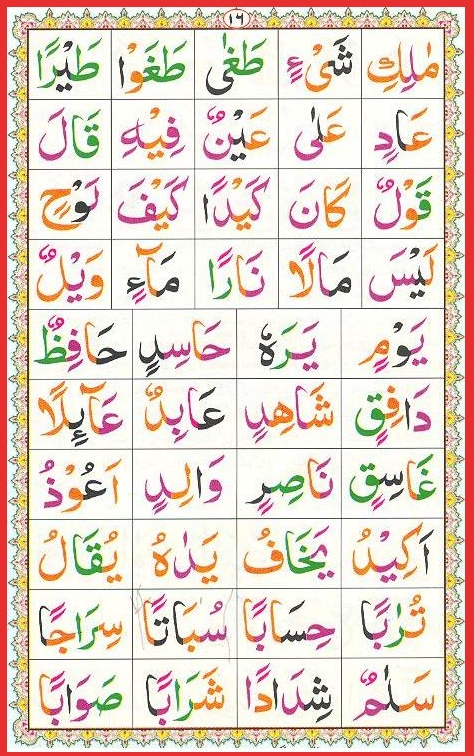 ١٦
مٰلِكِ شَیْءٍ طَغٰی طَغَوْا طَيْرًا
عَادٍ عَلٰی عَيْنٌ فِيْهِ قَالَ
قَوْلٌ كَانَ كَيْدًا كَيْفَ نُوْحٍ
لَيْسَ مَالًا نَارًا مَآءٍ وَيْلٌ
يَوْمٍ يَرَهٗ حَاسِدٍ حَافِظٌ
دَافِقٍ شَاهِدٍ عَابِدٌ عَآئِلًا
غَاسِقٍ نَاصِرٍ وَالِدٍ اَعُوْذُ
اَكِيْدُ يَخَافُ يَدٰهُ يُقَالُ
تُرٰبًا حِسَابًا سُبَاتًا سِرَاجًا
سَلٰمٌ شِدَادًا شَرَابًا صَوَابًا